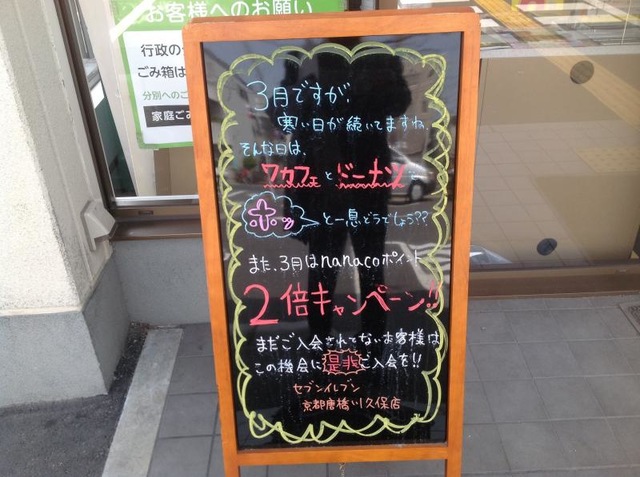 お客様へのお願い
行政の
ごみ箱は
分別へのご
家庭ごみ
3月ですが、
寒い日が続いてますね。
そんな日は、
ワカフェとドーナツ
ホッ
と一息どうでしょう??
また、3月はnanacoポイント
2倍キャンペーン!!
まだご入会されてないお客様は
この機会に是非ご入会を!!
セブンイレブン
京都唐橋川久保店